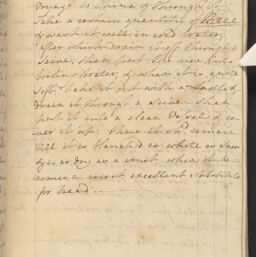 Take a certain quantity of Rice
& wash it well in cold Water,
after which drain it off through a
Seive, then put the rice into
boiling Water, & when it is quite
soft take it out with a Ladle &
drain it through a Seive - then
put it into a clean Vessel & co=
ver it up: there let it remain
till it is blanch'd as white as Snow
& as dry as a crust, when it be=
comes a most excellent Substitute
for bread.